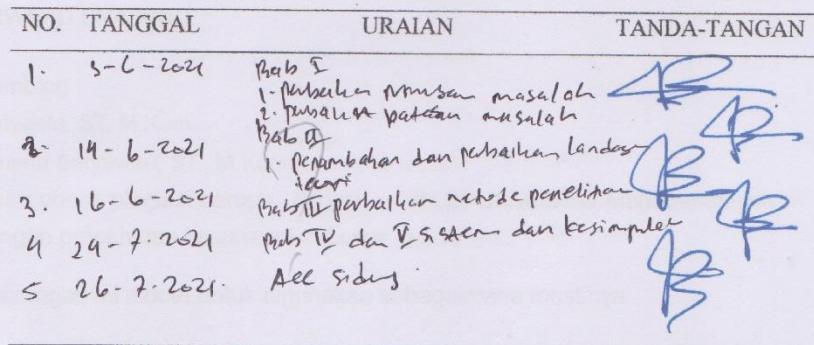 NO. TANGGAL URAIAN TANDA-TANGAN
1. 5-6-2021 Bab I
1. perbaikan rumusan masalah
2. perbaikan batasan masalah
2. 14-6-2021 Bab II
penambahan dan perbaikan landasan
teori
3. 16-6-2021 Bab III perbaikan metode penelitian
4 24-7-2021 Bab IV dan V sistem dan kesimpulan
5 26-7-2021. Acc sidang